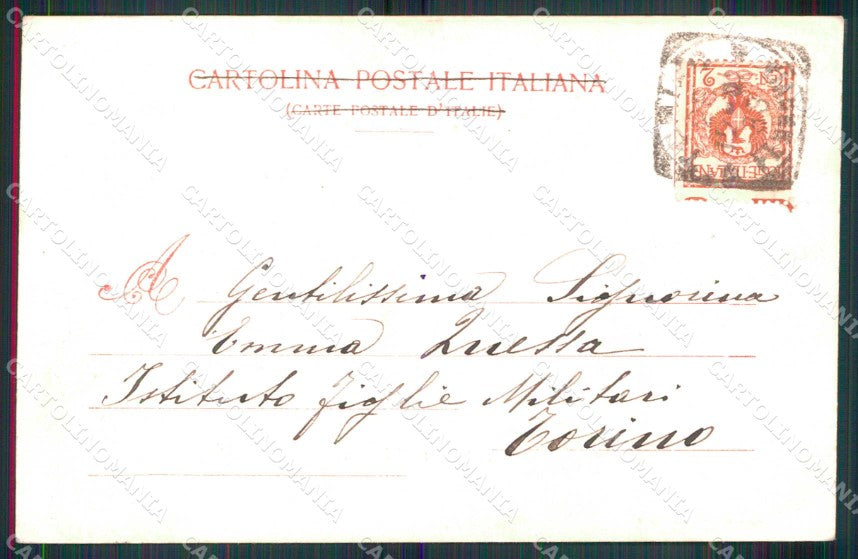 CARTOLINA POSTALE ITALIANA
(CARTE POSTALE D'ITALIE)
A Gentilissima Signorina
Emma Quessa
Istituto Figlie Militari
Torino
CARTOLINOMANIA